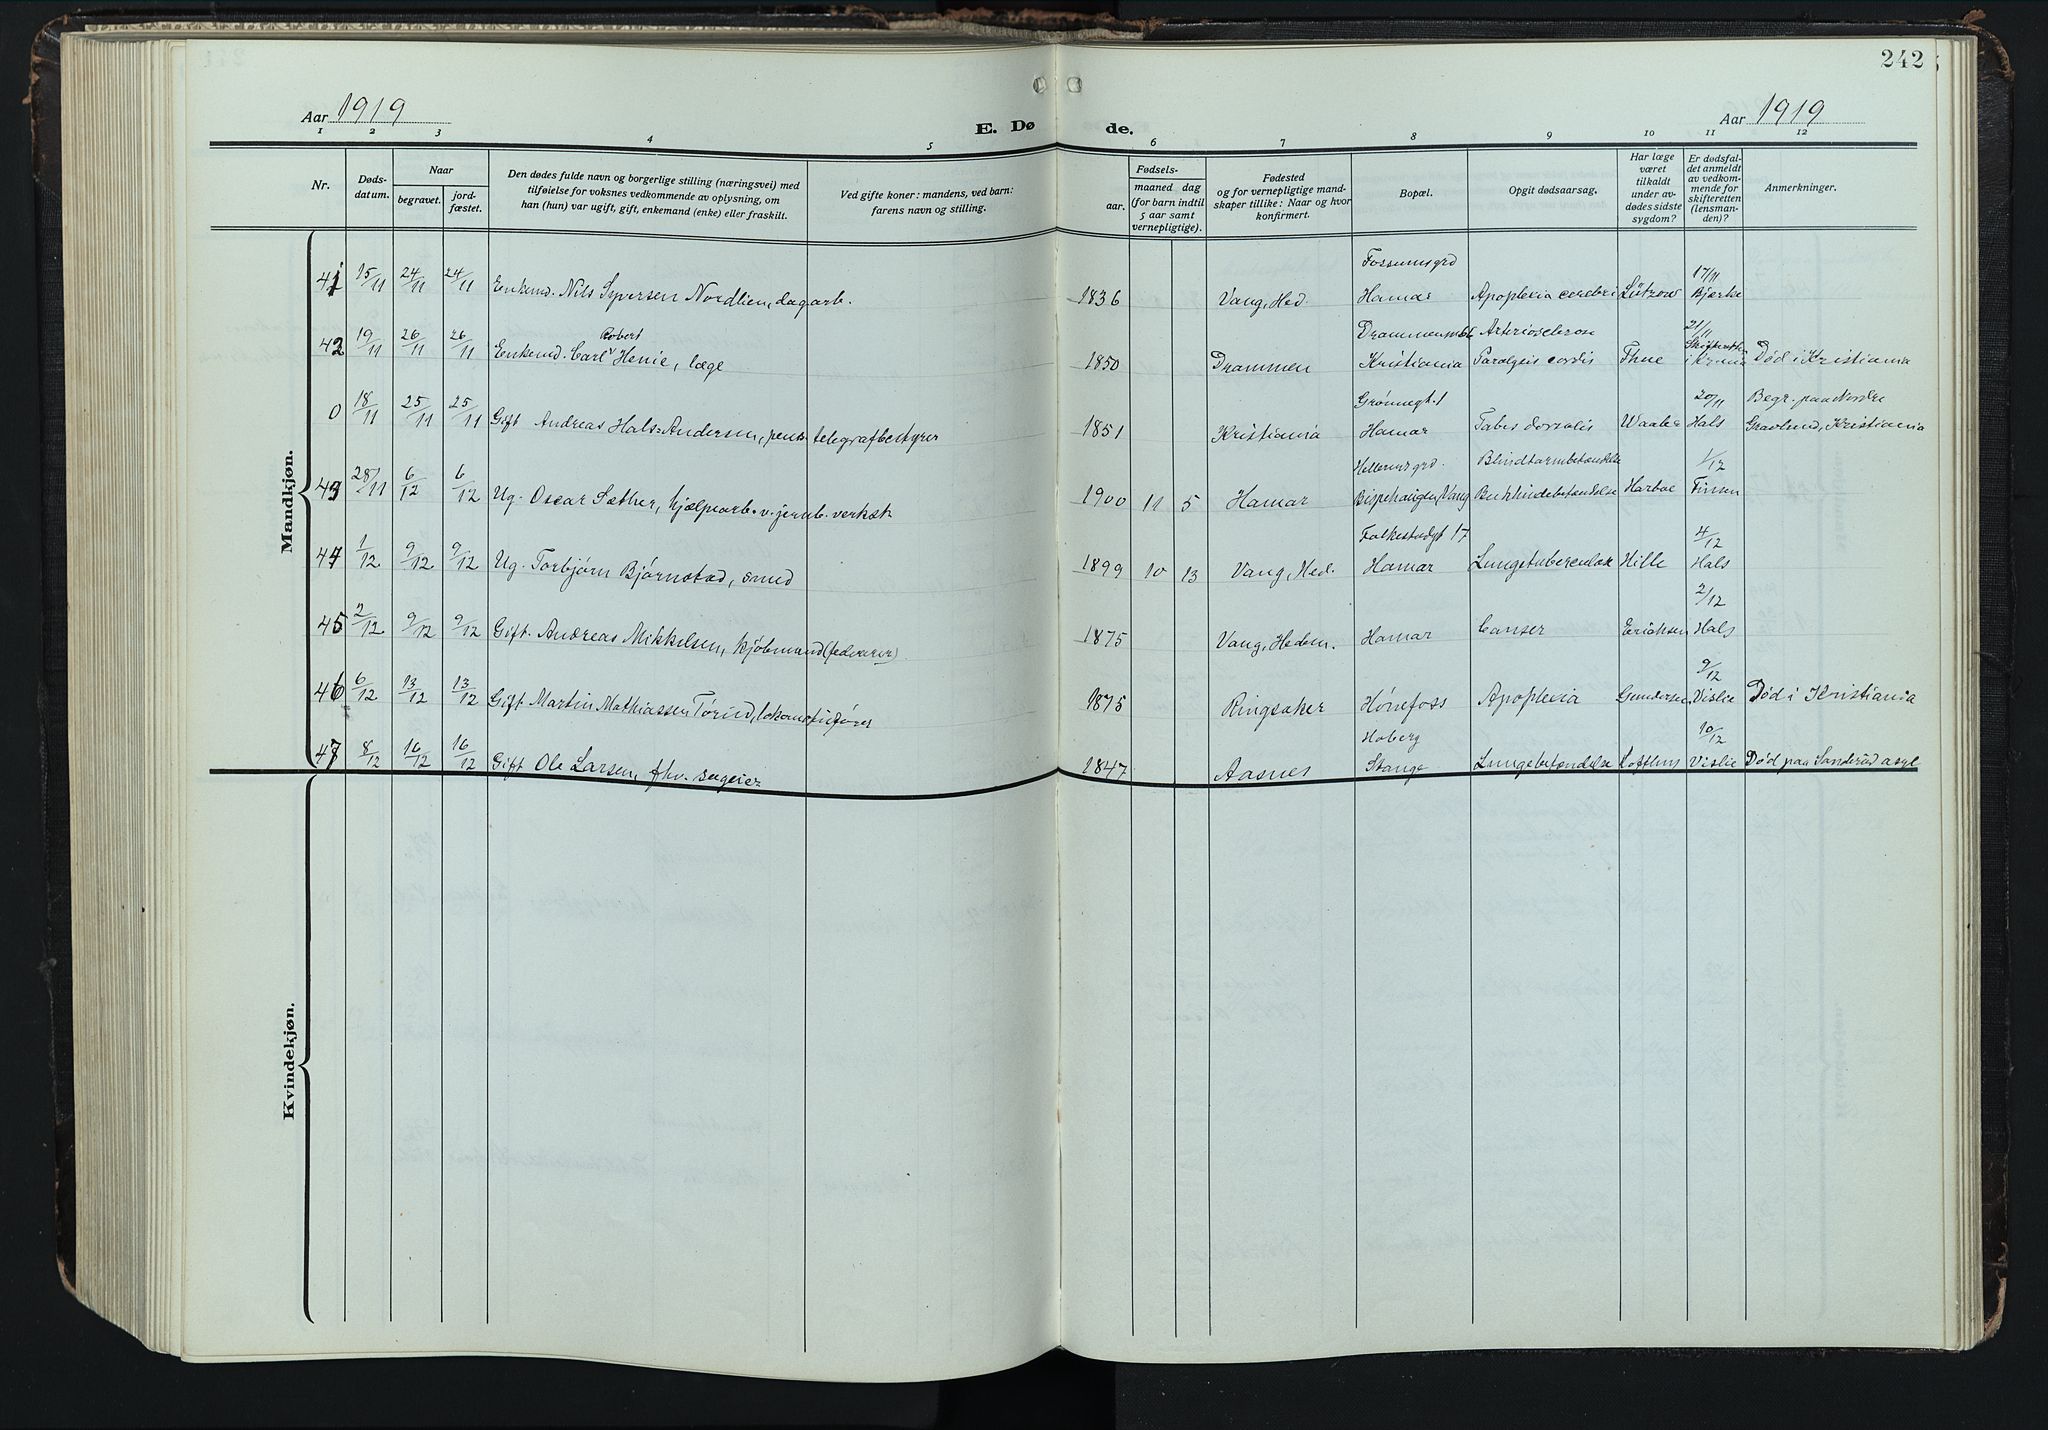 242
Aar 1919
E. Døde.
Aar 1919
1 2 3 4 5 6 7 8 9 10 11 12
Nr.
Dødsdatum.
Naar
begravet.
jordfæstet.
Den dødes fulde navn og borgerlige stilling (næringsvei) med
tilføielse for voksnes vedkommende av oplysning, om
han (hun) var ugift, gift, enkemand (enke) eller fraskilt.
Ved gifte koner: mandens, ved barn:
farens navn og stilling.
Fødsels-
aar.
maaned dag
(for barn indtil
5 aar samt
vernepligtige).
Fødested
og for vernepligtige mand-
skaper tillike: Naar og hvor
konfirmert.
Bopæl.
Opgit dødsaarsag.
Har læge
været
tilkaldt
under av-
dødes sidste
sygdom?
Er dødsfal-
det anmeldt
av vedkom-
mende for
skifteretten
(lensman-
den)?
Anmerkninger.
Mandkjøn.
Fossumsgrd 17/11
41 15/11 24/11 24/11 Enkemd. Nils Syversen Nordlien, dagarb. 1836 Vang, Hed. Hamar Apoplexia cerebri Lützow Bjerke
Robert Arteriosclerose 21/11
42 19/11 26/11 26/11 Enkemd. Carl Henie, læge 1850 Drammen Kristiania Paralysis cordis Thue Død i Kristiania
Grønnegt. 1 20/11 Begr. paa Nordre
0 18/11 25/11 25/11 Gift Andreas Hals-Andersen, pens. telegrafbestyrer 1851 Kristiania Hamar Tabes dorsalis Waaler Hals Gravlund, Kristiania
Blindtarmbetændelse 1/12
43 28/11 6/12 6/12 Ug. Oscar Sæther, hjælpearb. v. jernb. verkst. 1900 11 5 Hamar Bispehaugen, Vang Bukhindebetændelse Harboe Finsen
Falkestadgt 17 4/12
44 1/12 9/12 9/12 Ug. Torbjørn Bjørnstad, smed 1899 10 13 Vang, Hed. Hamar Lungetuberculose Hille Hals
2/12
45 2/12 9/12 9/12 Gift. Andreas Mikkelsen, kjøbmand (fedevarer). 1875 Vang, Hedem. Hamar Canser Erichsen Hals
9/12
46 6/12 13/12 13/12 Gift Martin Mathiassen Tørud, lokomotivfører 1875 Ringsaker Hønefoss Apoplexia Gundersen Vislie Død i Kristiania
Hoberg 10/12
47 8/12 16/12 16/12 Gift Ole Larsen, fhv. sageier 1847 Aasnes Stange Lungebetændelse Lofthus Vislie Død paa Sanderud asyl
Kvindekjøn.